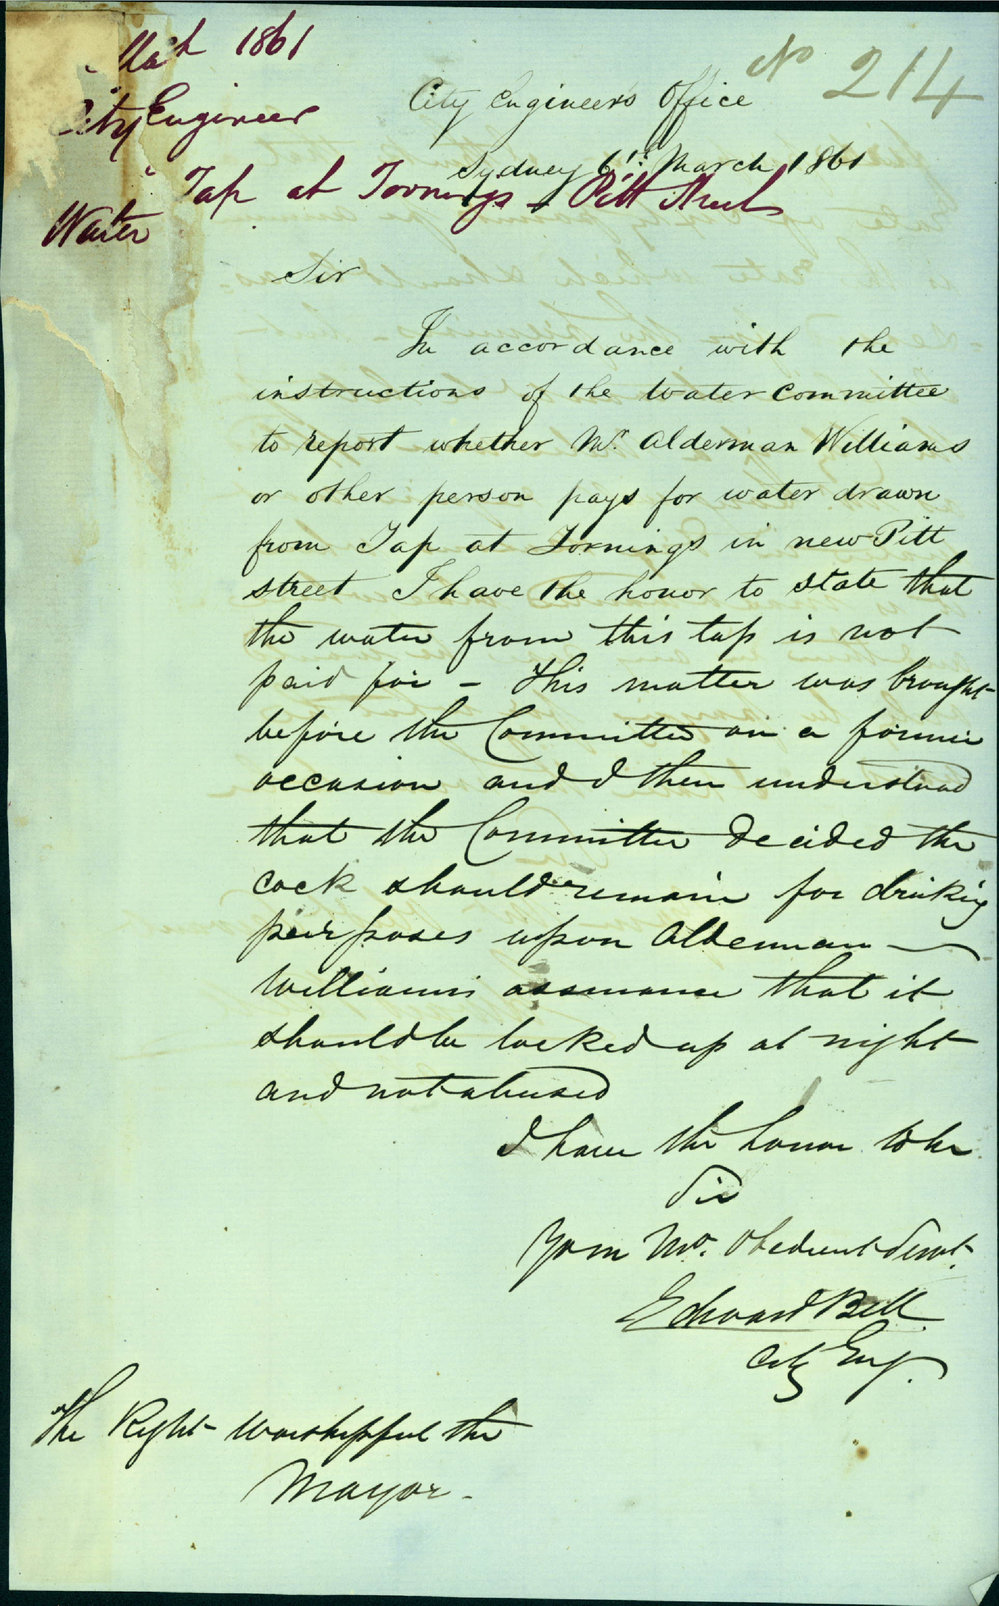 March 1861
City Engineer
Tap at Tornings - Pitt Street
Water
No 214
City Engineers Office
Sydney 6th March 1861
Sir
In accordance with the
instructions of the Water Committee
to report whether Mr. Alderman Williams
or other person pays for water drawn
from Tap at Tornings in new Pitt
street I have the honor to state that
the water from this tap is not
paid for – This matter was brought
before the Committee on a former
occasion and I then understood
that the Committee decided the
cock should remain for drinking
purposes upon Alderman
Williams assurance that it
should be locked up at night
and not abused
I have the honor to be
Sir
Your Mo. Obedient Servt.
Edward Bell
City Eng.
The Right Worshipful the
Mayor -